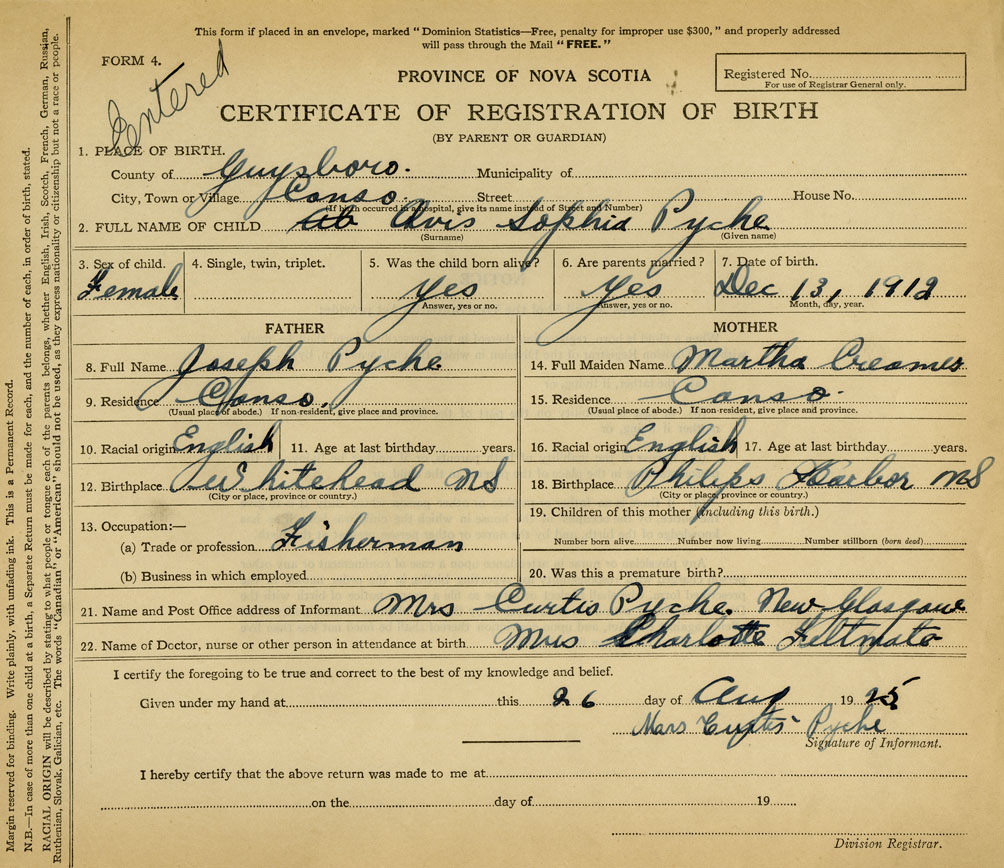 This form if placed in an envelope, marked "Dominion Statistics—Free, penalty for improper use $300," and properly addressed
will pass through the Mail "FREE."
FORM 4.
Entered
PROVINCE OF NOVA SCOTIA
Registered No.
For use of Registrar General only.
CERTIFICATE OF REGISTRATION OF BIRTH
(BY PARENT OR GUARDIAN)
1. PLACE OF BIRTH.
County of Guysboro. Municipality of
City, Town or Village Canso. Street House No.
(If birth occurred in a hospital, give its name instead of Street and Number)
2. FULL NAME OF CHILD Avis Sophia Pyche
(Surname) (Given name)
3. Sex of child. 4. Single, twin, triplet. 5. Was the child born alive? 6. Are parents married? 7. Date of birth.
Female yes yes Dec 13, 1912
Answer, yes or no. Answer, yes or no. Month, day, year.
FATHER MOTHER
8. Full Name Joseph Pyche 14. Full Maiden Name Martha Creamer
9. Residence Canso. 15. Residence Canso.
(Usual place of abode.) If non-resident, give place and province. (Usual place of abode.) If non-resident, give place and province.
10. Racial origin English 11. Age at last birthday years. 16. Racial origin English 17. Age at last birthday years.
12. Birthplace Whitehead NS 18. Birthplace Philips Harbor NS
(City or place, province or country.) (City or place, province or country.)
13. Occupation:— 19. Children of this mother (including this birth.)
(a) Trade or profession Fisherman Number born alive. Number now living. Number stillborn (born dead)
(b) Business in which employed 20. Was this a premature birth?
21. Name and Post Office address of Informant Mrs Curtis Pyche. New Glasgow
22. Name of Doctor, nurse or other person in attendance at birth Mrs Charlotte Feltmate
I certify the foregoing to be true and correct to the best of my knowledge and belief.
Given under my hand at this 26 day of Aug 1925
Mars Curtis Pyche
Signature of Informant.
I hereby certify that the above return was made to me at
on the day of 19
Division Registrar.
Margin reserved for binding. Write plainly, with unfading ink. This is a Permanent Record.
N.B.—In case of more than one child at a birth, a Separate Return must be made for each, and the number of each, in order of birth, stated.
RACIAL ORIGIN will be described by stating to what people or tongue each of the parents belongs, whether English, Irish, Scotch, French, German, Russian,
Ruthenian, Slovak, Galician, etc. The words "Canadian" or "American" should not be used, as they express nationality or citizenship but not a race or people.